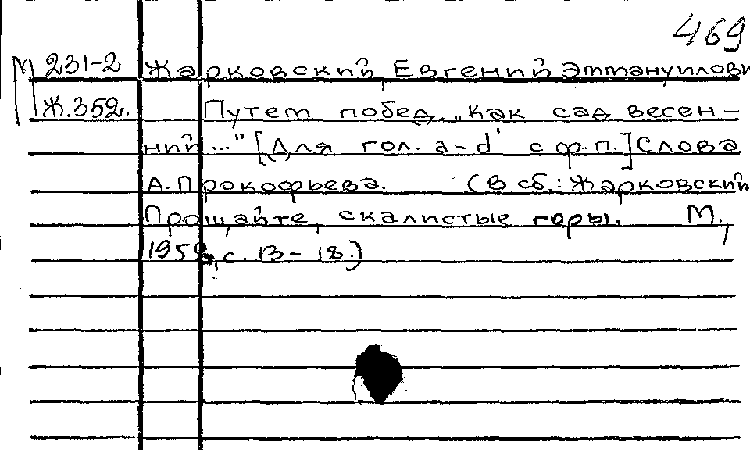 469
М 231-2 Жарковский, Евгений Эммануилович
Ж.352. Путем побед „Как сад весен-
ний..." [Для гол. a-d' с ф.п.] Слова
А. Прокофьева. (В сб.: Жарковский
Прощайте, скалистые горы. М.,
с. 13-18.)